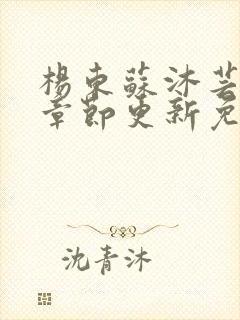 楊東蘇沐芸
章節更新免
沈青沐